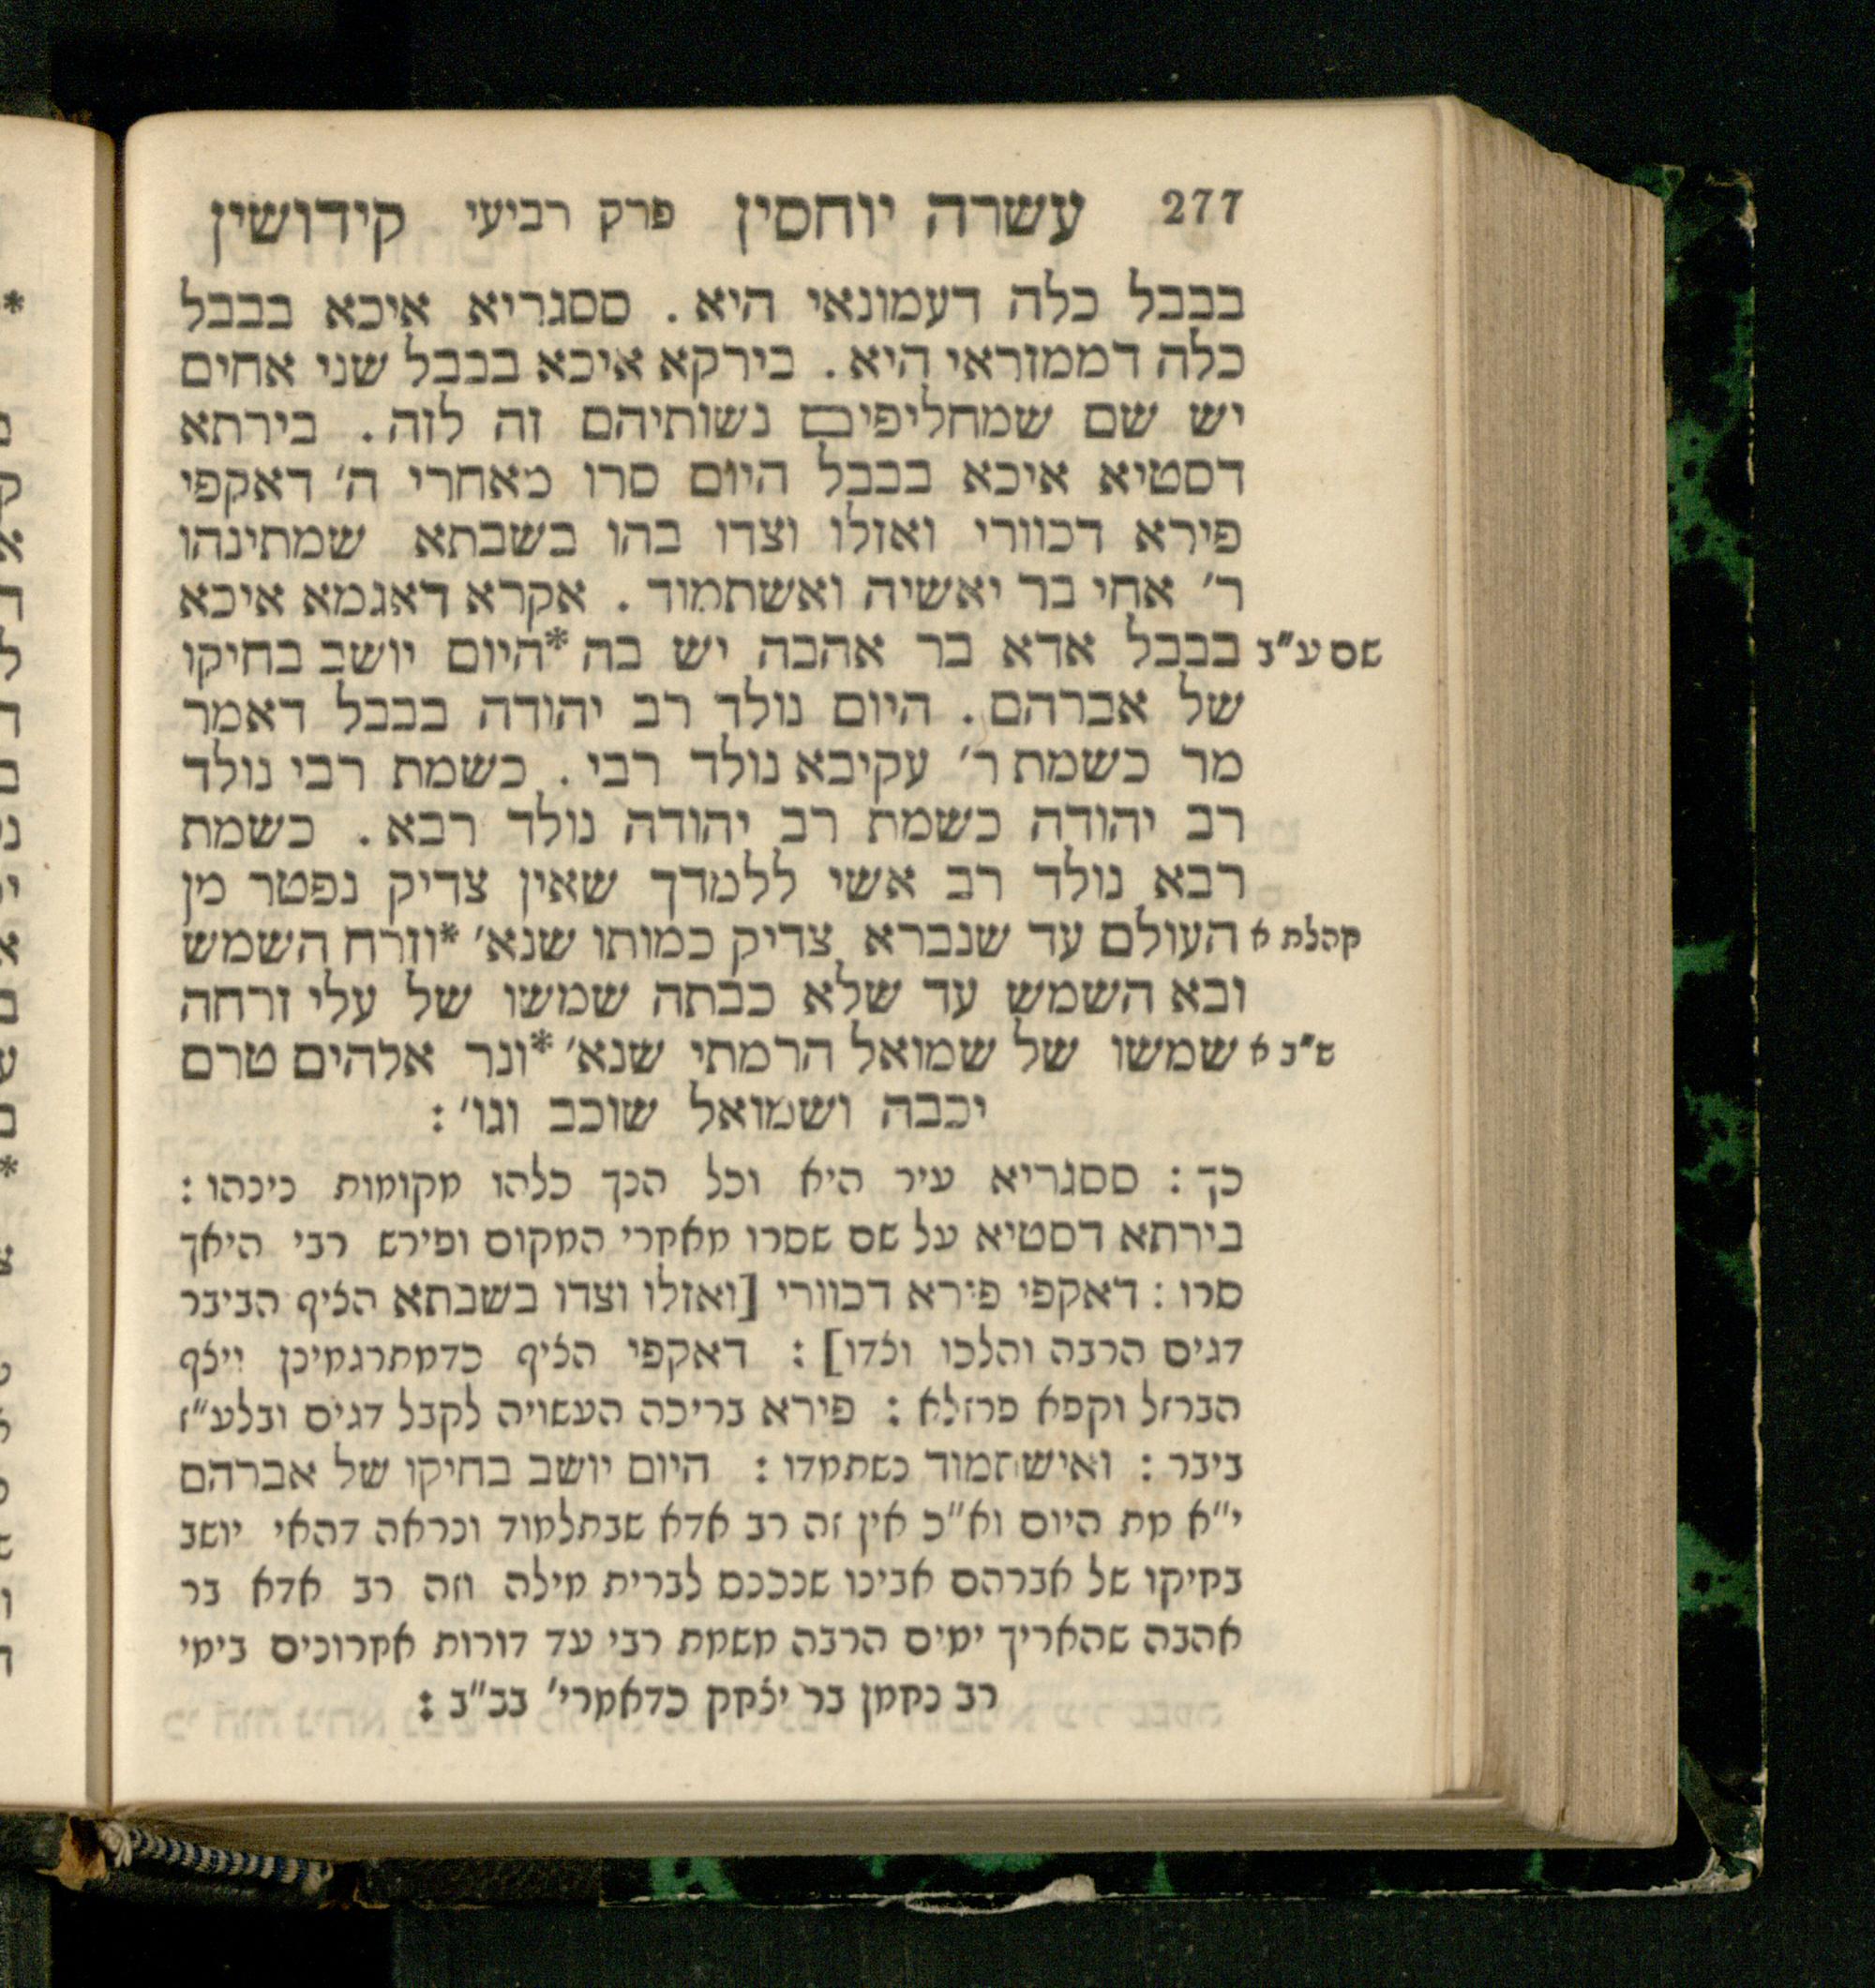 277 עשרה יוחסין פרק רביעי קידושין
בבבל כלה דעמונאי היא. ססגריא איכא בבבל
כלה דממזראי היא. בירקא איכא בבבל שני אחים
יש שם שמחליפים נשותיהם זה לזה. בירתא
דסטיא איכא בבבל היום סרו מאחרי ה׳ דאקפי
פירא דכוורי ואזלו וצדו בהו בשבתא שמתינהו
ר׳ אחי בר יאשיה ואשתמוד. אקרא דאגמא איכא
שם ע״ב בבבל אדא בר אהבה יש בה *היום יושב בחיקו
של אברהם. היום נולד רב יהודה בבבל דאמר
מר כשמת ר׳ עקיבא נולד רבי. כשמת רבי נולד
רב יהודה כשמת רב יהודה נולד רבא. כשמת
רבא נולד רב אשי ללמדך שאין צדיק נפטר מן
קהלת א העולם עד שנברא צדיק כמותו שנא׳ *וזרח השמש
ובא השמש עד שלא כבתה שמשו של עלי זרחה
ש״ב א שמשו של שמואל הרמתי שנא׳ *ונר אלהים טרם
יכבה ושמואל שוכב וגו׳:
כך: ססגריא עיר היא וכל הנך כלהו מקומות נינהו:
בירתא דסטיא על שם שסרו מאחרי המקום ופירש רבי היאך
סרו: דאקפי פירא דכוורי [ואזלו וצדו בשבתא הציף הביבר
דגים הרבה והלכו וצדו]: דאקפי הציף כדמתרגמינן ויצף
הברזל וקפא פרזלא: פירא בריכה העשויה לקבל דגים ובלע״ז
ביבר: ואישתמוד נשתמדו: היום יושב בחיקו של אברהם
י״א מת היום וא״כ אין זה רב אדא שבתלמוד ונראה דהאי יושב
בחיקו של אברהם אבינו שנכנס לברית מילה וזה רב אדא בר
אהבה שהאריך ימים הרבה משמת רבי עד דורות אחרונים בימי
רב נחמן בר יצחק כדאמרי׳ בב״ב: